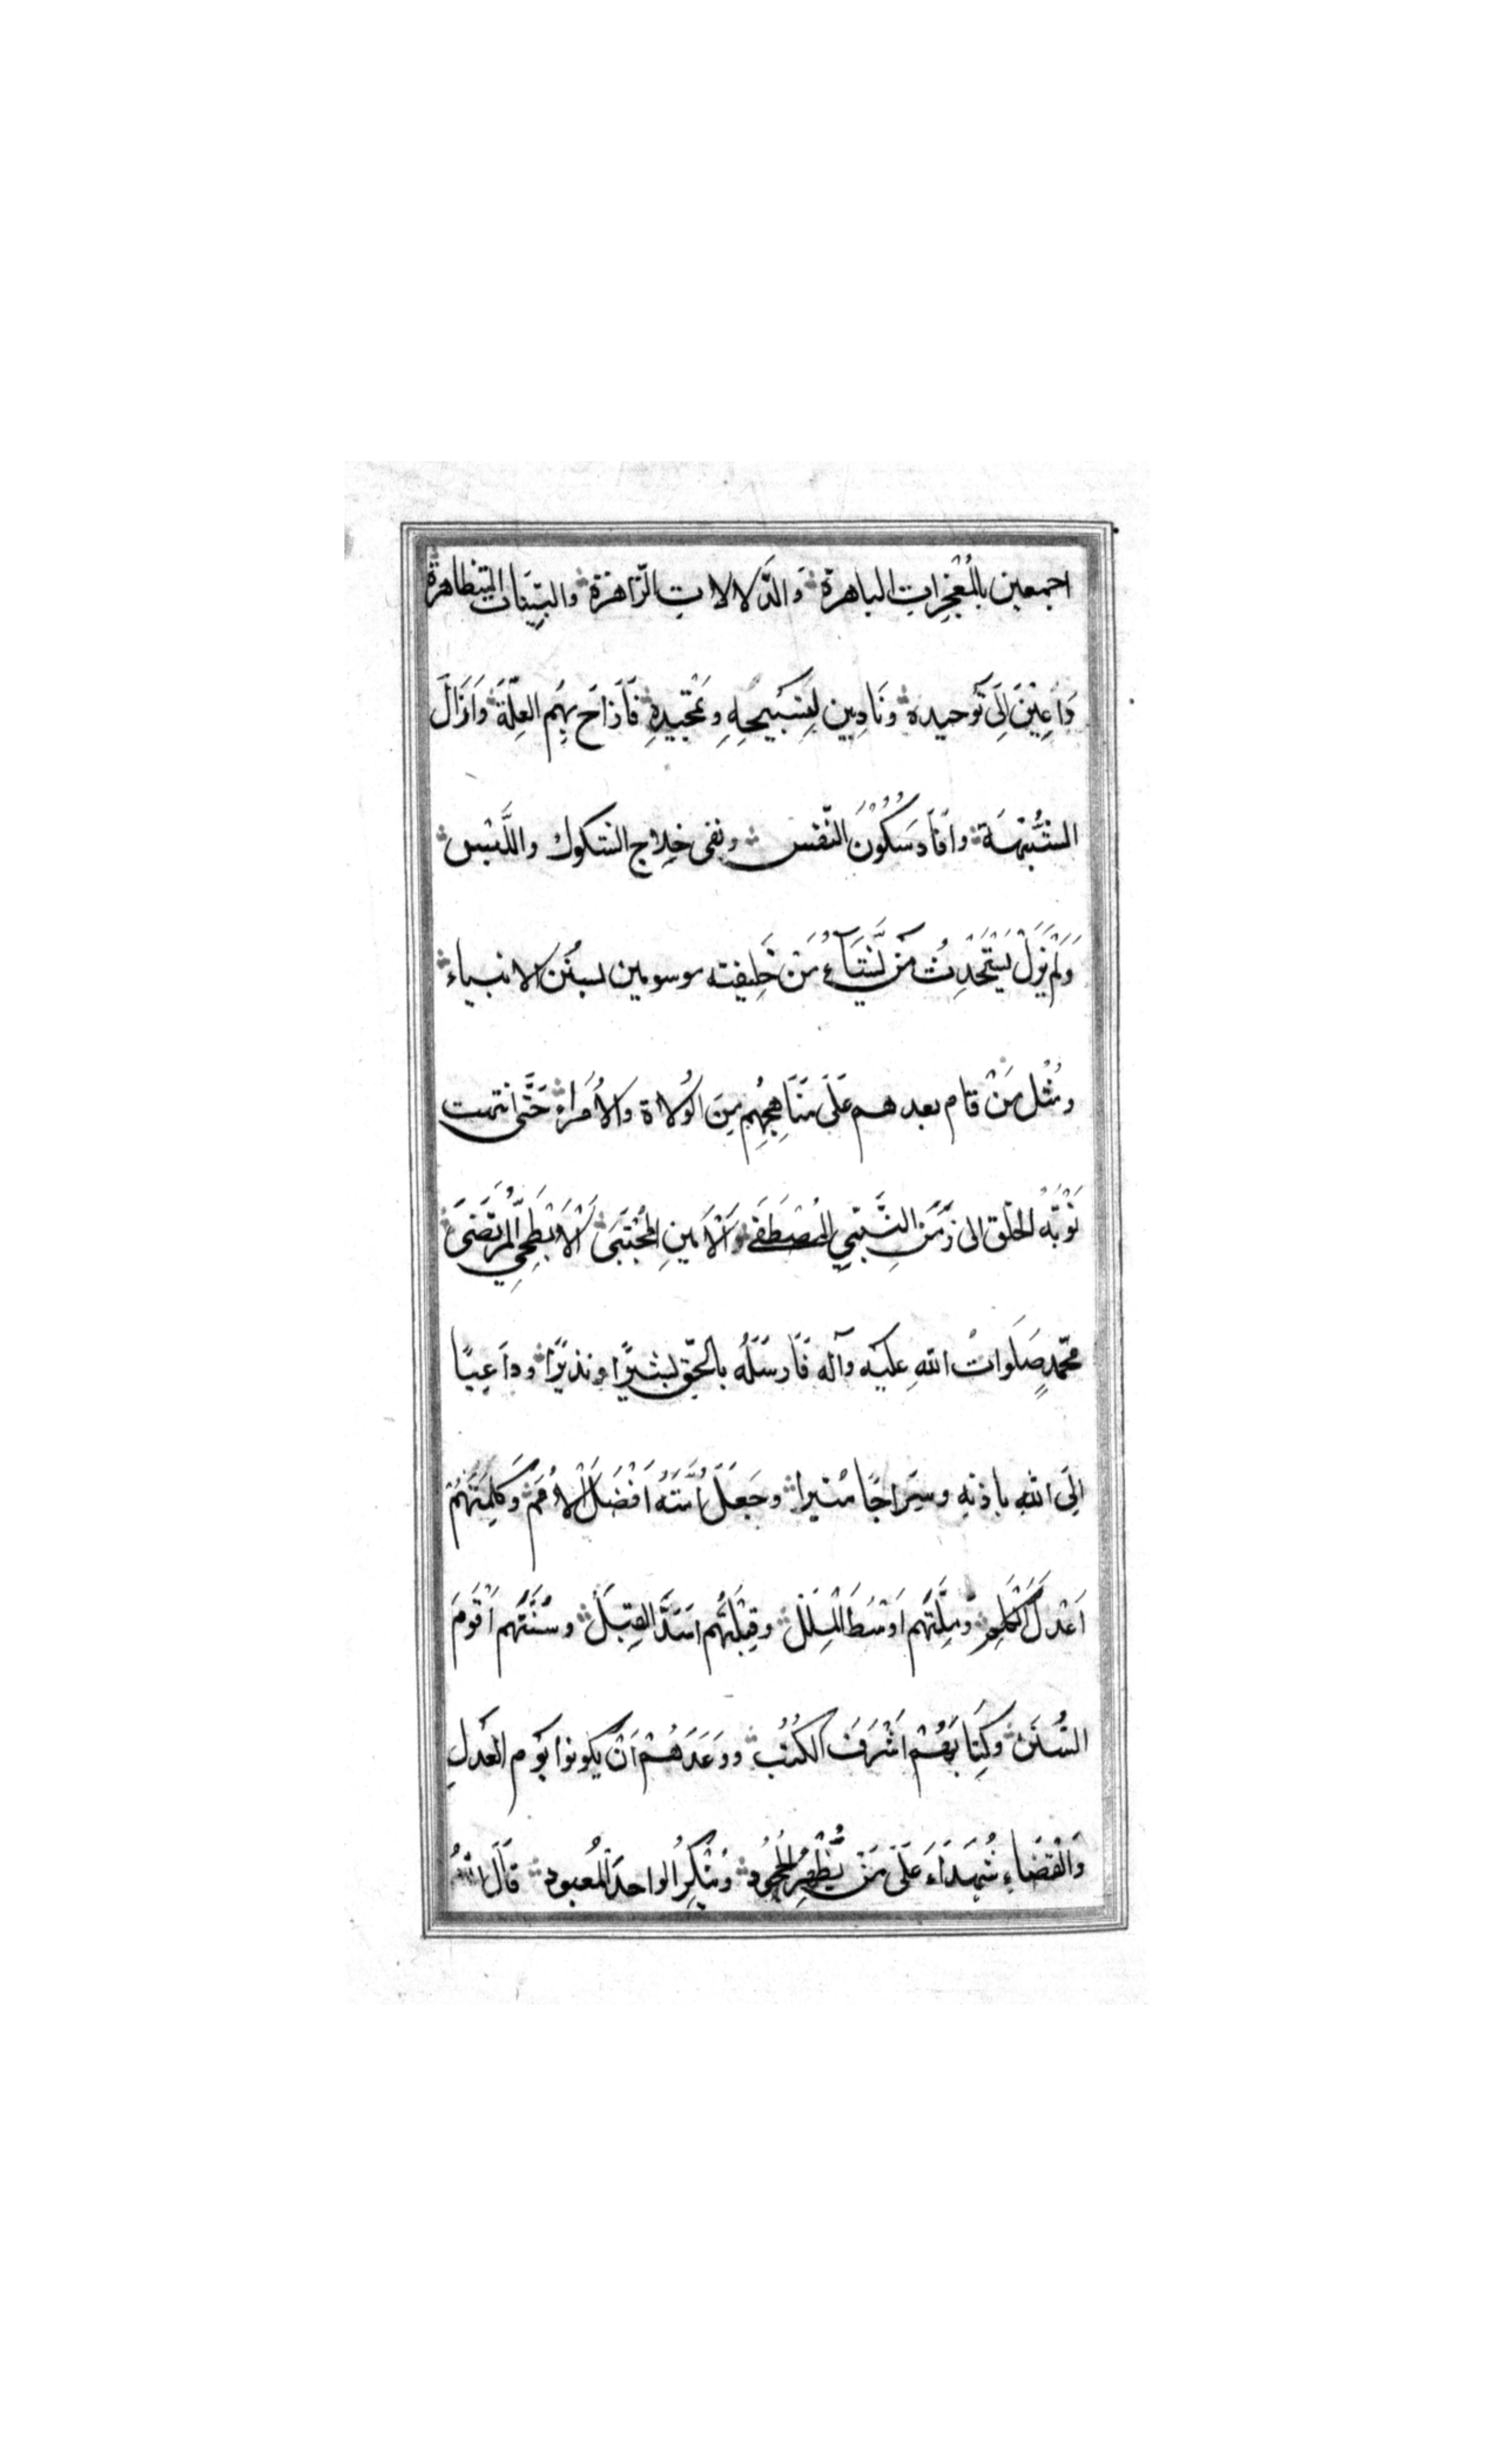 اجمعين بالمُعْجِزاتِ الباهرة وَالدَّلالاتِ الزّاهرَة والبَيِّنات المتظاهرة
دَاعِيْنَ اِلَى تَوحيده ونَادِبين لِتَسْبيحِهِ وتَمْجيدِهِ فَاَزَاحَ بِهِم العِلّةَ وَاَزَالَ
الشُّبْهَةَ واَفَادَ سُكُوْنَ النّفْس ونفى خلاج الشكوك واللَّبْس
وَلَمْ يَزَلْ يَسْتَحْدِثُ مَنْ يَّشَآءُ مَنْ خَليفته موسومين بسُنَن الانبياء
ومُثْل مَنْ قام بعدهم عَلَى مَنَاهِجِهِم مِنَ الوُلاة والاُمَراء حَتَّى انتهت
نَوْبَةُ الخلْق الى زَمَنِ النَّبيّ المُصْطَفَى وَالْاَمينِ المُجْتَبَى الْاَبْطَحِيّ المُرْتَضَى
محمّدٍ صَلَوات اللهِ عليْه وآله فَاَرسَلَهُ بالحَقّ بشيرًا ونذيرًا ودَاعِيًا
اِلَى اللهِ باذنِه وسِرَاجًا مُنيرا وجَعَلَ اُمَّتَهُ اَفْضَلَ الْاُمَم وَكَلِمَتَهُمْ
اَعْدَلَ الْكَلِمِ وَمِلَّتَهُم اَوْسَطَ الْمِلَل وقِبْلَتَهُم اسَدَّ القِبَل وسُنَّتَهُم اَقْوَمَ
السُّنَن وكِتَابَهُمْ اَشْرَفَ الكُتُب ووَعَدَهُمْ اَنْ يكونوا يَوم العَدلِ
وَالْقَضَاءِ شُهَدَاءَ عَلَى مَنْ يُّظْهِرُ الْجُحُود وَيُنْكِرُ الواحدَ الْمعبود قَالَ اللهُ